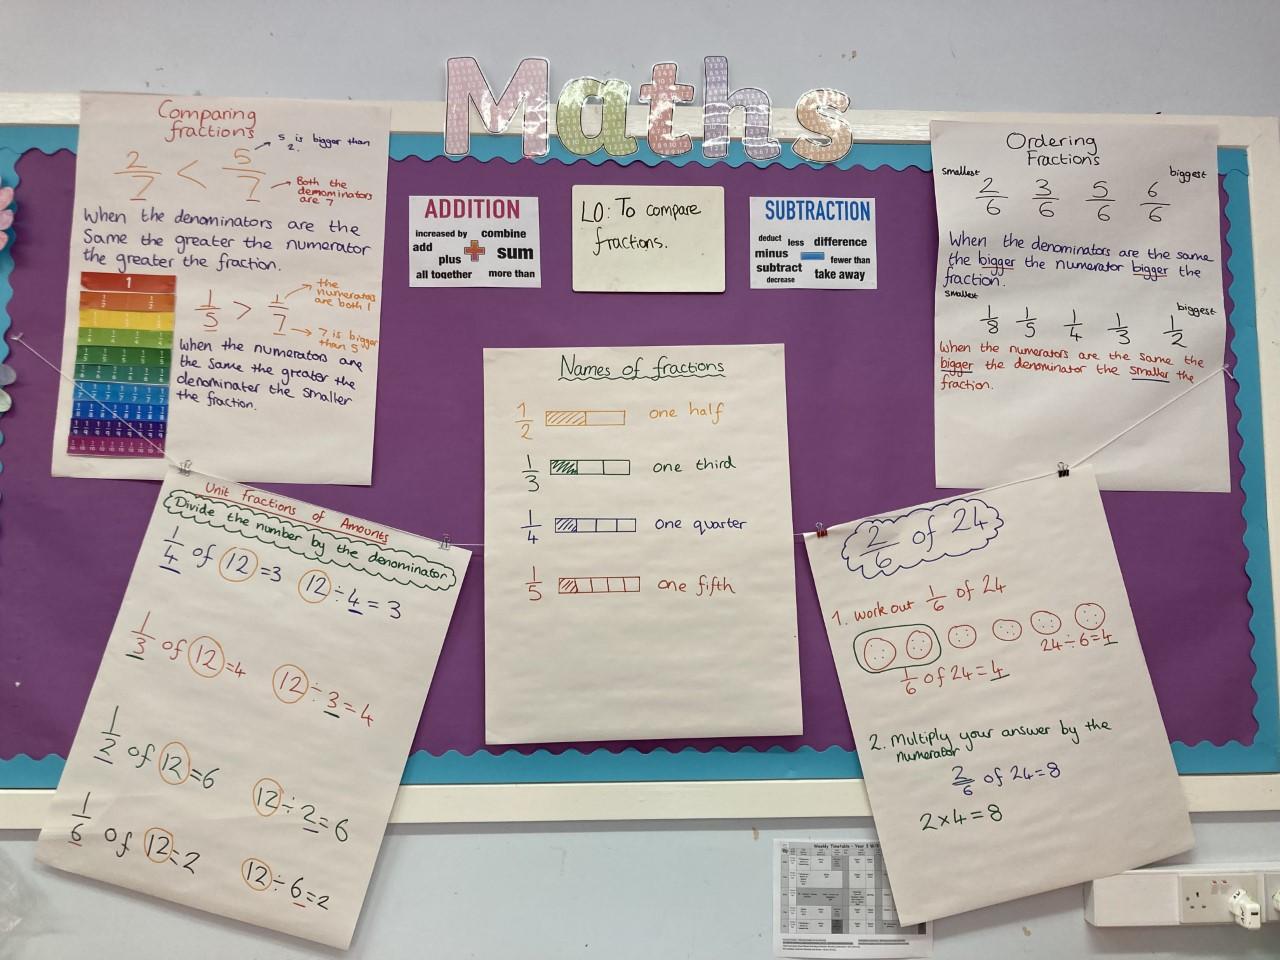 Maths
Comparing
fractions
2/7 < 5/7
5 is bigger than
2.
Both the
demominators
are 7
When the denominators are the
Same the greater the numerator
the greater the fraction.
1
1/5 > 1/7
the
numerators
are both 1
7 is bigger
than 5
When the numerators are
the same the greater the
denominater the smaller
the fraction.
ADDITION
increased by combine
add
plus + sum
all together more than
LO: To compare
fractions.
SUBTRACTION
deduct less difference
minus fewer than
subtract
decrease take away
Ordering
Fractions
smallest biggest
2/6 3/6 5/6 6/6
When the denominators are the same
the bigger the numerator bigger the
fraction.
smallest biggest
1/8 1/5 1/4 1/3 1/2
When the numerators are the same the
bigger the denominator the smaller the
fraction.
Names of fractions
1/2 one half
1/3 one third
1/4 one quarter
1/5 one fifth
Unit fractions of Amounts
Divide the number by the denominator
1/4 of 12=3 12÷4=3
1/3 of 12=4 12÷3=4
1/2 of 12=6 12÷2=6
1/6 of 12=2 12÷6=2
2/6 of 24
1. work out 1/6 of 24
24÷6=4
1/6 of 24=4
2. Multiply your answer by the
numerator
2/6 of 24=8
2×4=8
Weekly Timetable - Year 3